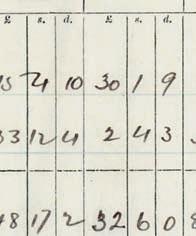 £ s. d. £ s. d.
15 4 10 30 1 9
33 12 4 2 4 3
48 17 2 32 6 0